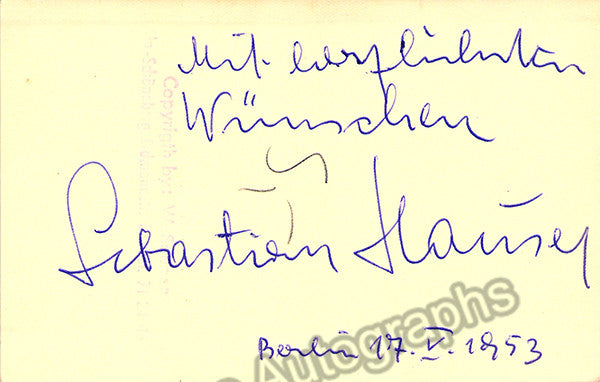 Mit herzlichsten
Wünschen
Sebastian Hauser
Berlin 17. V. 1953
Autographs